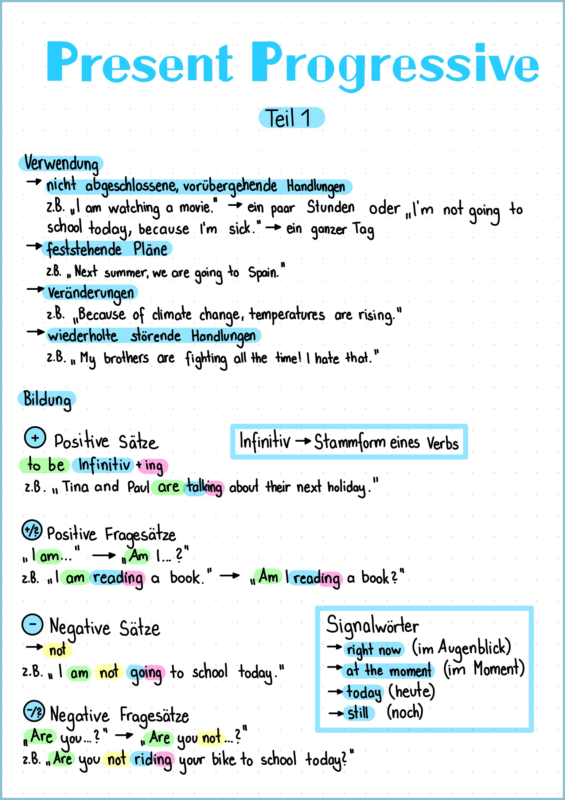 Present Progressive
Teil 1
Verwendung
→ nicht abgeschlossene, vorübergehende Handlungen
z.B. „I am watching a movie." → ein paar Stunden oder „I'm not going to
school today, because I'm sick." → ein ganzer Tag
→ feststehende Pläne
z.B. „Next summer, we are going to Spain."
→ Veränderungen
z.B. „Because of climate change, temperatures are rising."
→ wiederholte störende Handlungen
z.B. „My brothers are fighting all the time! I hate that."
Bildung
+ Positive Sätze
Infinitiv → Stammform eines Verbs
to be Infinitiv +ing
z.B. „Tina and Paul are talking about their next holiday."
+/? Positive Fragesätze
„I am..." → „Am I...?"
z.B. „I am reading a book." → „Am I reading a book?"
- Negative Sätze
→ not
z.B. „I am not going to school today."
Signalwörter
→ right now (im Augenblick)
→ at the moment (im Moment)
→ today (heute)
→ still (noch)
-/? Negative Fragesätze
„Are you...?" → „Are you not...?"
z.B. „Are you not riding your bike to school today?"